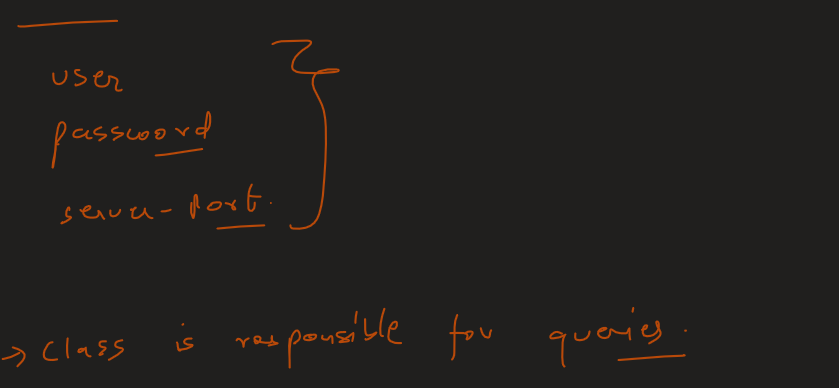 user
password
server-port.
→ Class is responsible for queries.